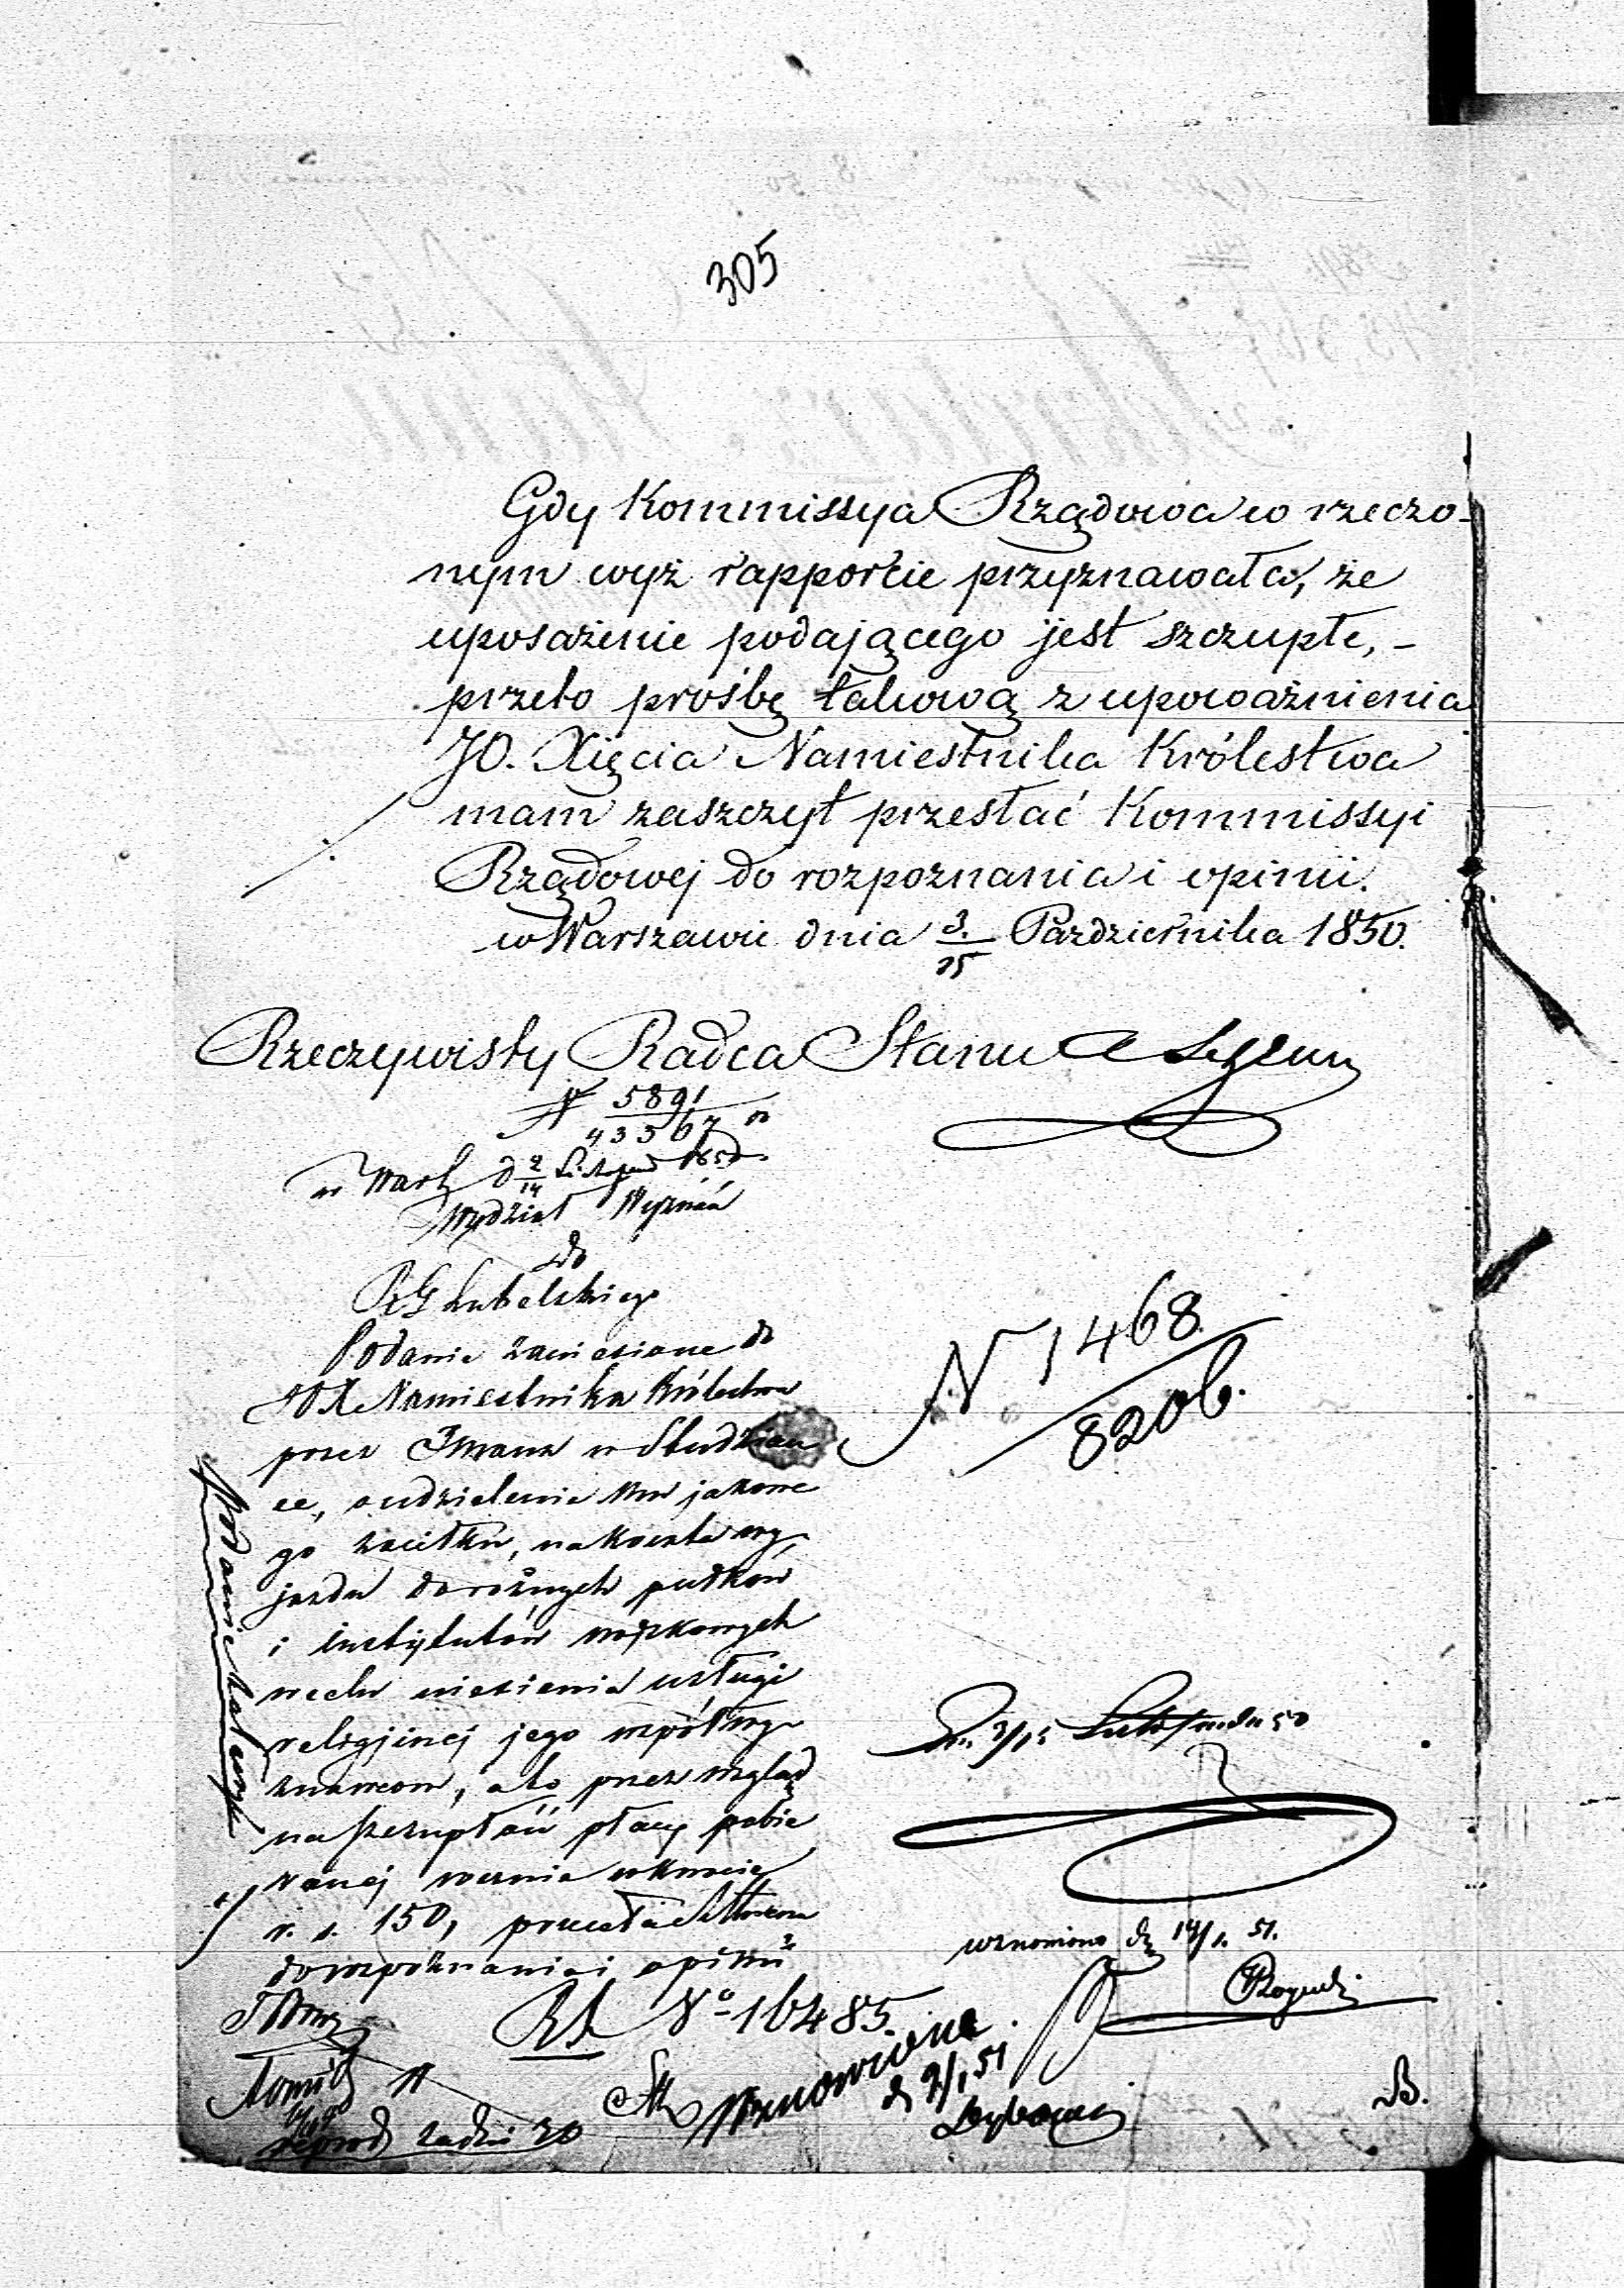 305
Gdy Kommissya Rządowa w rzeczo-
nym wyż rapporcie przyznawała, że
uposażenie podającego jest szczupłe, -
przeto prośbę takową z upoważnienia
JO. Xięcia Namiestnika Królestwa
mam zaszczyt przesłać Kommissyi
Rządowej do rozpoznania i opinii.
w Warszawie dnia 3./15 Pazdziernika 1850.
Rzeczywisty Radca Stanu
N 5891/43367
w Warsz d 2/14 Listopad 1850
Wydział Wyznań
do
RG Lubelskiego
Podanie zaniesione do
JOX Namiestnika Królestwa
przez Imana w Studzian
ce, o udzielenie mu jakowe
go zasiłku, na koszta wy
jazdu do różnych pułków
i instytutów wojskowych
w celu niesienia usługi
religijnej jego współwy
znawcom, a to przez wzgląd
na szczupłość płacy pobie
ranej rocznie w kwocie
r. s. 150, przesłać
do rozpoznania i opinii
Podanie
N 1468/8206.
Dn. 3/15 50
wznowiono d 14/1. 51.
No 16485.
Wznowione
d 9/1 51
B.